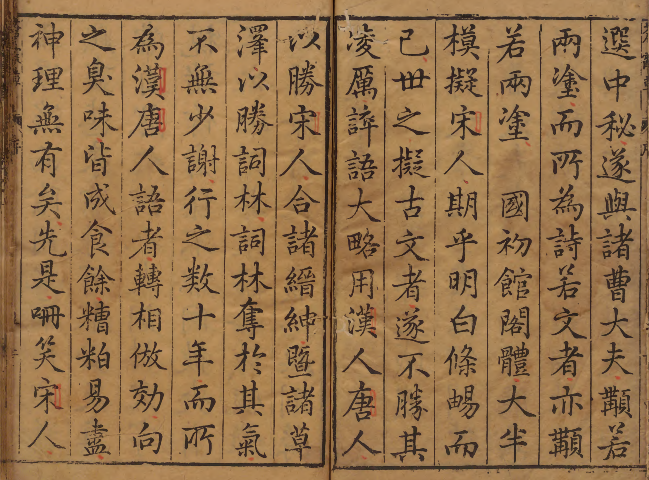 選中秘遂與諸曹大夫顜若
兩塗而所為詩若文者亦顜
若兩塗國初館閣體大半
模擬宋人期乎明白條暢而
已世之擬古文者遂不勝其
凌厲誶語大略用漢人唐人
以勝宋人合諸縉紳暨諸草
澤以勝詞林詞林奪於其氣
不無少謝行之数十年而所
為漢唐人語者轉相倣効向
之臭味皆成食餘糟粕易盡
神理無有矣先是哂笑宋人